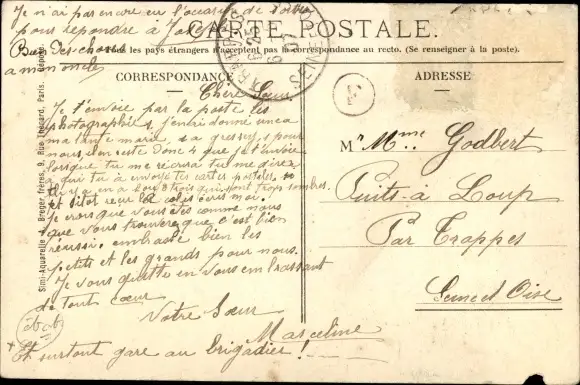 Je n'ai pas encore eu l'occasion de
pour répondre à
CARTE POSTALE.
Tous les pays étrangers n'acceptent pas la correspondance au recto. (Se renseigner à la poste).
Bien des choses
a mon oncle
CORRESPONDANCE
ADRESSE
Chère Sœur
Je t'envoie par la poste les
photographies, j'en ai donné une a
ma tante marie sa pour
nous, il en reste Donc 4 que je t'envoie
lorsque tu me récrira tu me diras
qui tu a envoyé tes cartes postales.
il y en a 2 ou 3 trois qui sont trop sombres.
et sitot reçu le colis écris moi.
Je crois que vous êtes comme nous
que vous trouverez que c'est bien
réussi. embrasse bien les
petits et les grands pour nous.
Je vous quitte en vous embrassant
de tout cœur
Votre Sœur
Marceline
Et surtout gare au brigadier !
M' Mme Godbert
Puits à Loup
Par Trappes
Seine et Oise
Simi-Aquarelle Breger frères, 9, Rue Thénard, Paris.